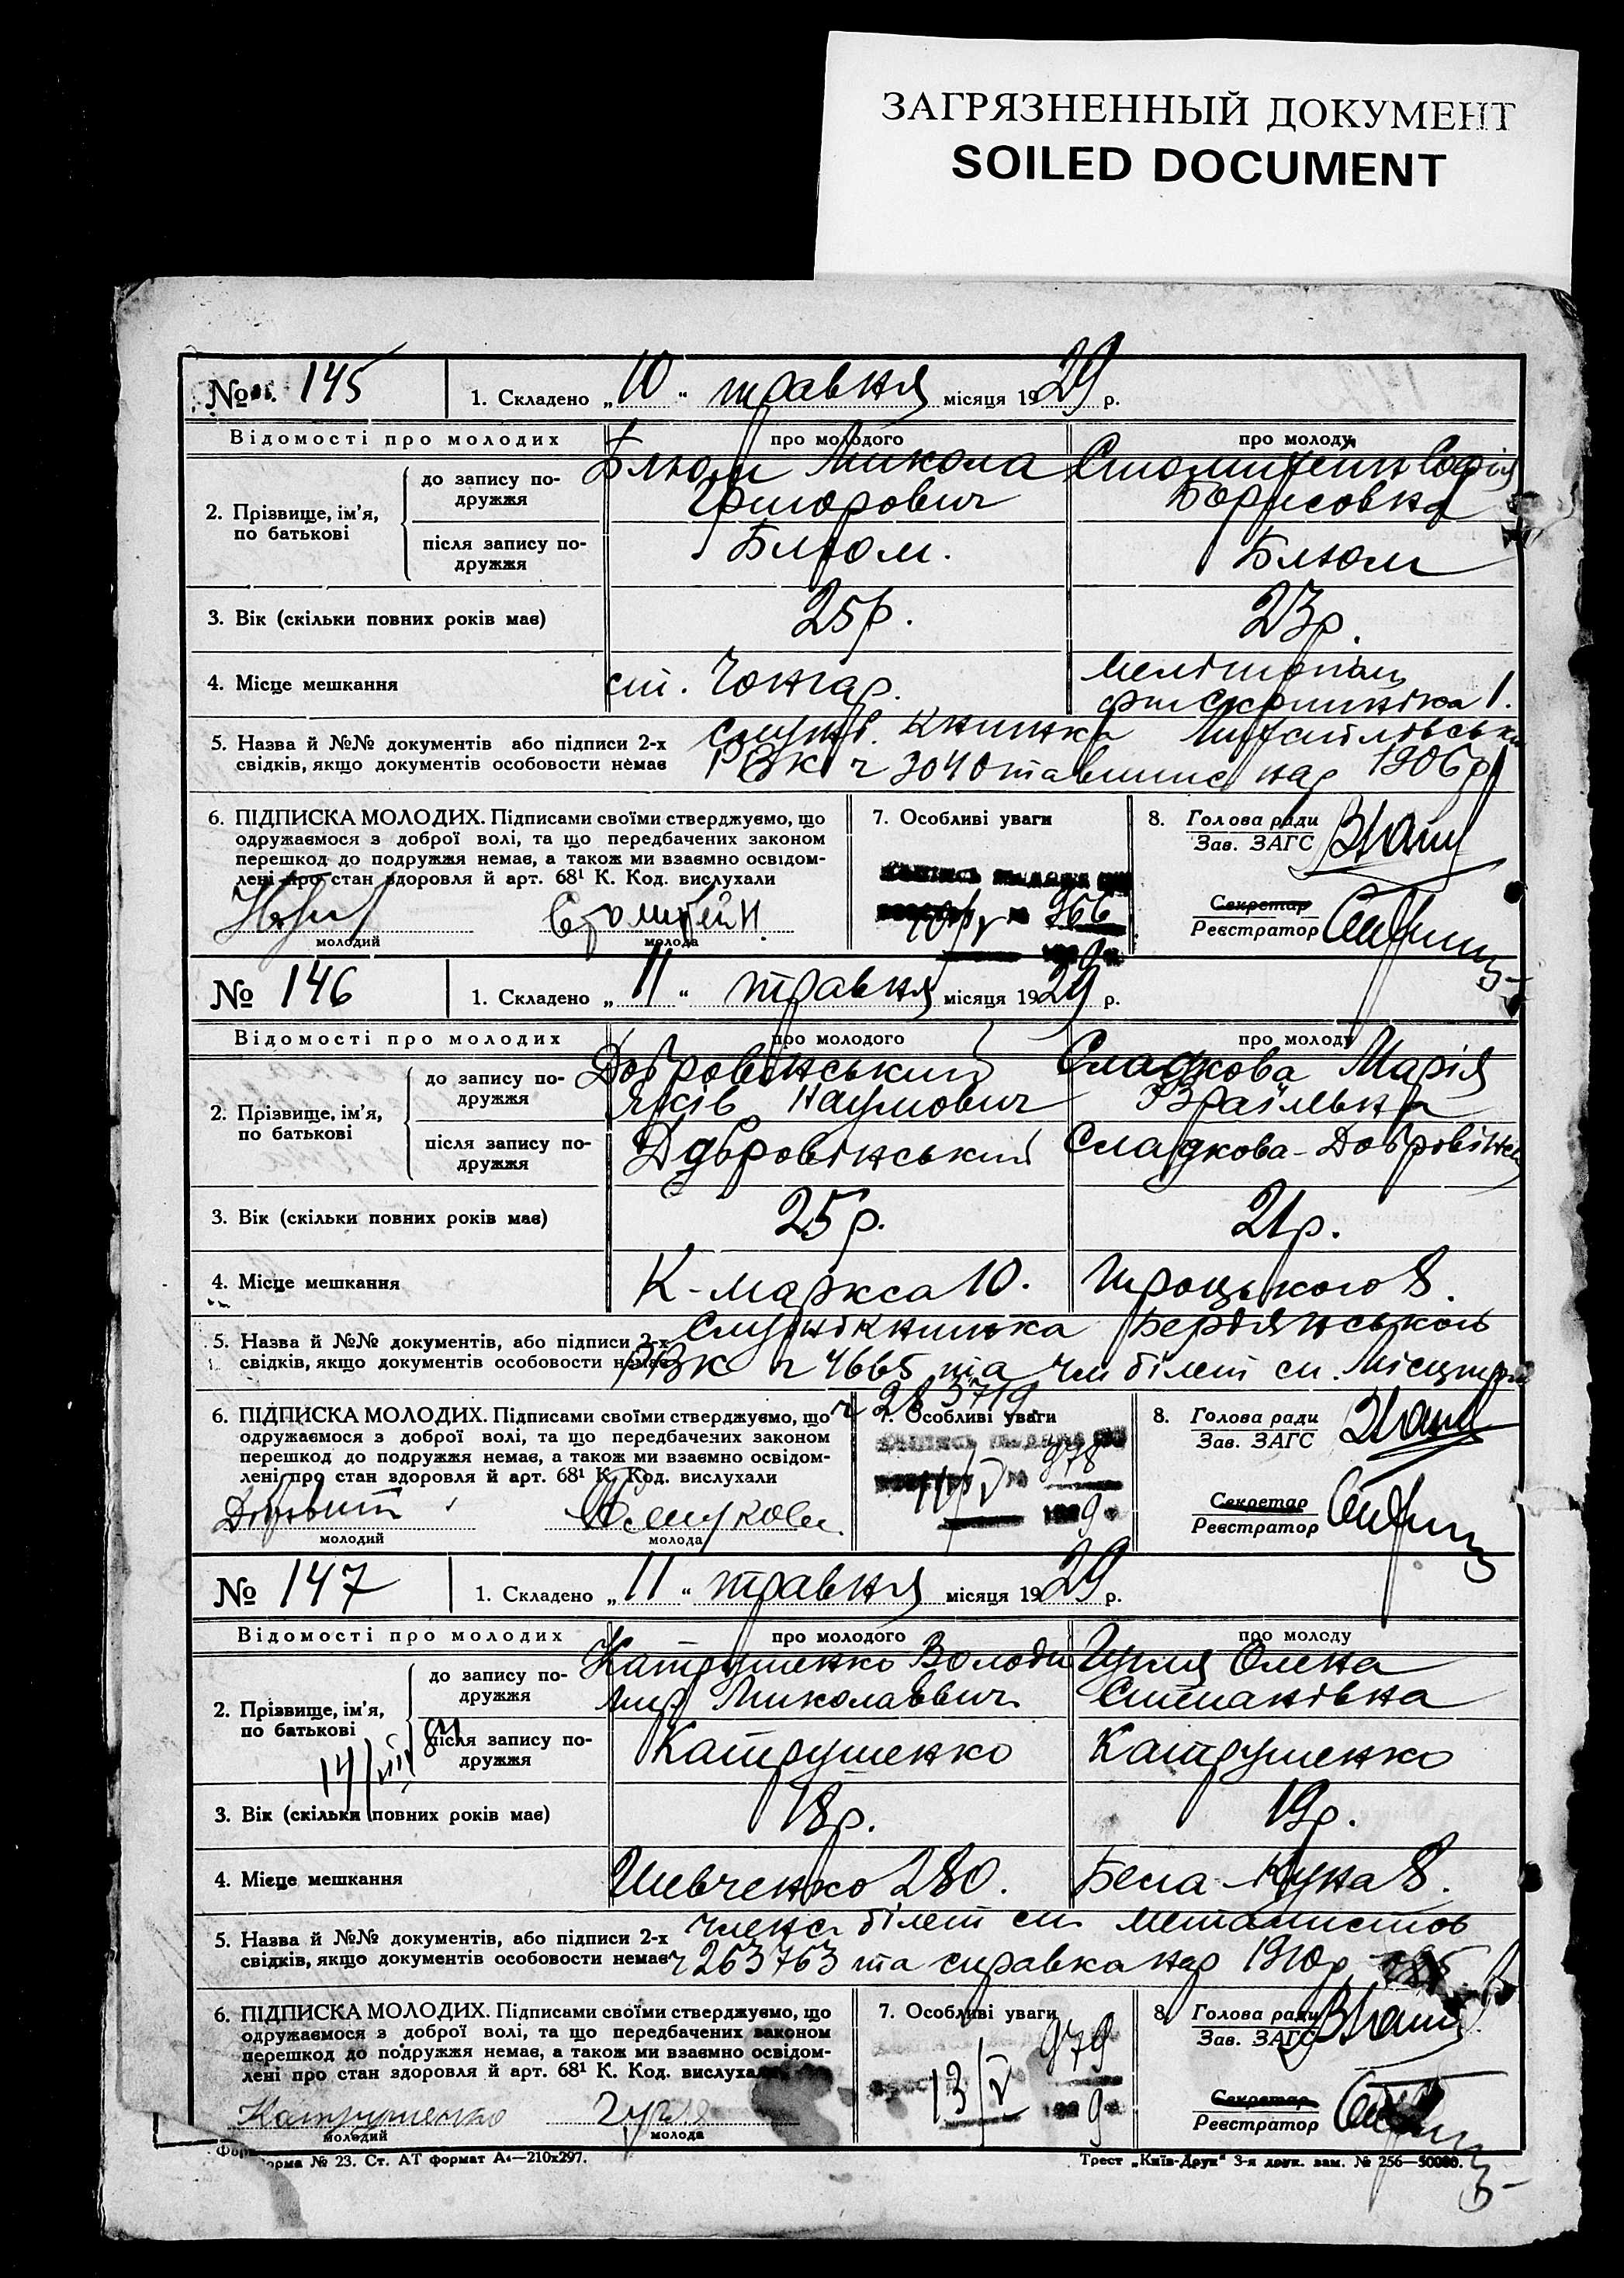 ЗАГРЯЗНЕННЫЙ ДОКУМЕНТ
SOILED DOCUMENT
№ 145 1. Складено „10“ травня місяця 1929 р.
Відомості про молодих про молодого про молоду
2. Прізвище, ім'я, по батькові
до запису по-дружжя Блюм Микола Григорович Борисовна
після запису по-дружжя Блюм. Блюм
3. Вік (скільки повних років має) 25р. 23р.
4. Місце мешкання ст. Чонгар. 1.
5. Назва й №№ документів або підписи 2-х книжка
свідків, якщо документів особовости немає РВК ч 3040 нар 1906р
6. ПІДПИСКА МОЛОДИХ. Підписами своїми стверджуємо, що
одружаємося з доброї волі, та що передбачених законом
перешкод до подружжя немає, а також ми взаємно освідом-
лені про стан здоровля й арт. 68¹ К. Код. вислухали
молодий молода
7. Особливі уваги
966
8. Голова ради
Зав. ЗАГС
Секретар
Реєстратор
№ 146 1. Складено „11“ травня місяця 1929 р.
Відомості про молодих про молодого про молоду
2. Прізвище, ім'я, по батькові
до запису по-дружжя Добровінський Яків Наумович Сладкова Марія
після запису по-дружжя Добровінський Сладкова-Добровінськ
3. Вік (скільки повних років має) 25р. 21р.
4. Місце мешкання К-маркса 10. Троцького 8.
5. Назва й №№ документів, або підписи 2-х книжка Бердянського
свідків, якщо документів особовости немає РВК ч 4665 та чл білет сп.
ч 283719
6. ПІДПИСКА МОЛОДИХ. Підписами своїми стверджуємо, що
одружаємося з доброї волі, та що передбачених законом
перешкод до подружжя немає, а також ми взаємно освідом-
лені про стан здоровля й арт. 68¹ К. Код. вислухали
молодий молода
7. Особливі уваги
978
11/V
8. Голова ради
Зав. ЗАГС
Секретар
Реєстратор
№ 147 1. Складено „11“ травня місяця 1929 р.
Відомості про молодих про молодого про молоду
2. Прізвище, ім'я, по батькові
до запису по-дружжя Катрушенко Володимир Миколаєвич Олена
після запису по-дружжя Катрушенко Катрушенко
3. Вік (скільки повних років має) 18р. 19р.
4. Місце мешкання Шевченко 280. Бела-Куна 8.
5. Назва й №№ документів, або підписи 2-х членс білет сп металистов
свідків, якщо документів особовости немає ч 263763 та справка нар 1910р
6. ПІДПИСКА МОЛОДИХ. Підписами своїми стверджуємо, що
одружаємося з доброї волі, та що передбачених законом
перешкод до подружжя немає, а також ми взаємно освідом-
лені про стан здоровля й арт. 68¹ К. Код. вислухали
Катрушенко
молодий молода
7. Особливі уваги
979
13/V
8. Голова ради
Зав. ЗАГС
Секретар
Реєстратор
Форма № 23. Ст. АТ формат А4—210х297. Трест „Київ-Друк“ 3-я друк. зам. № 256—50000.